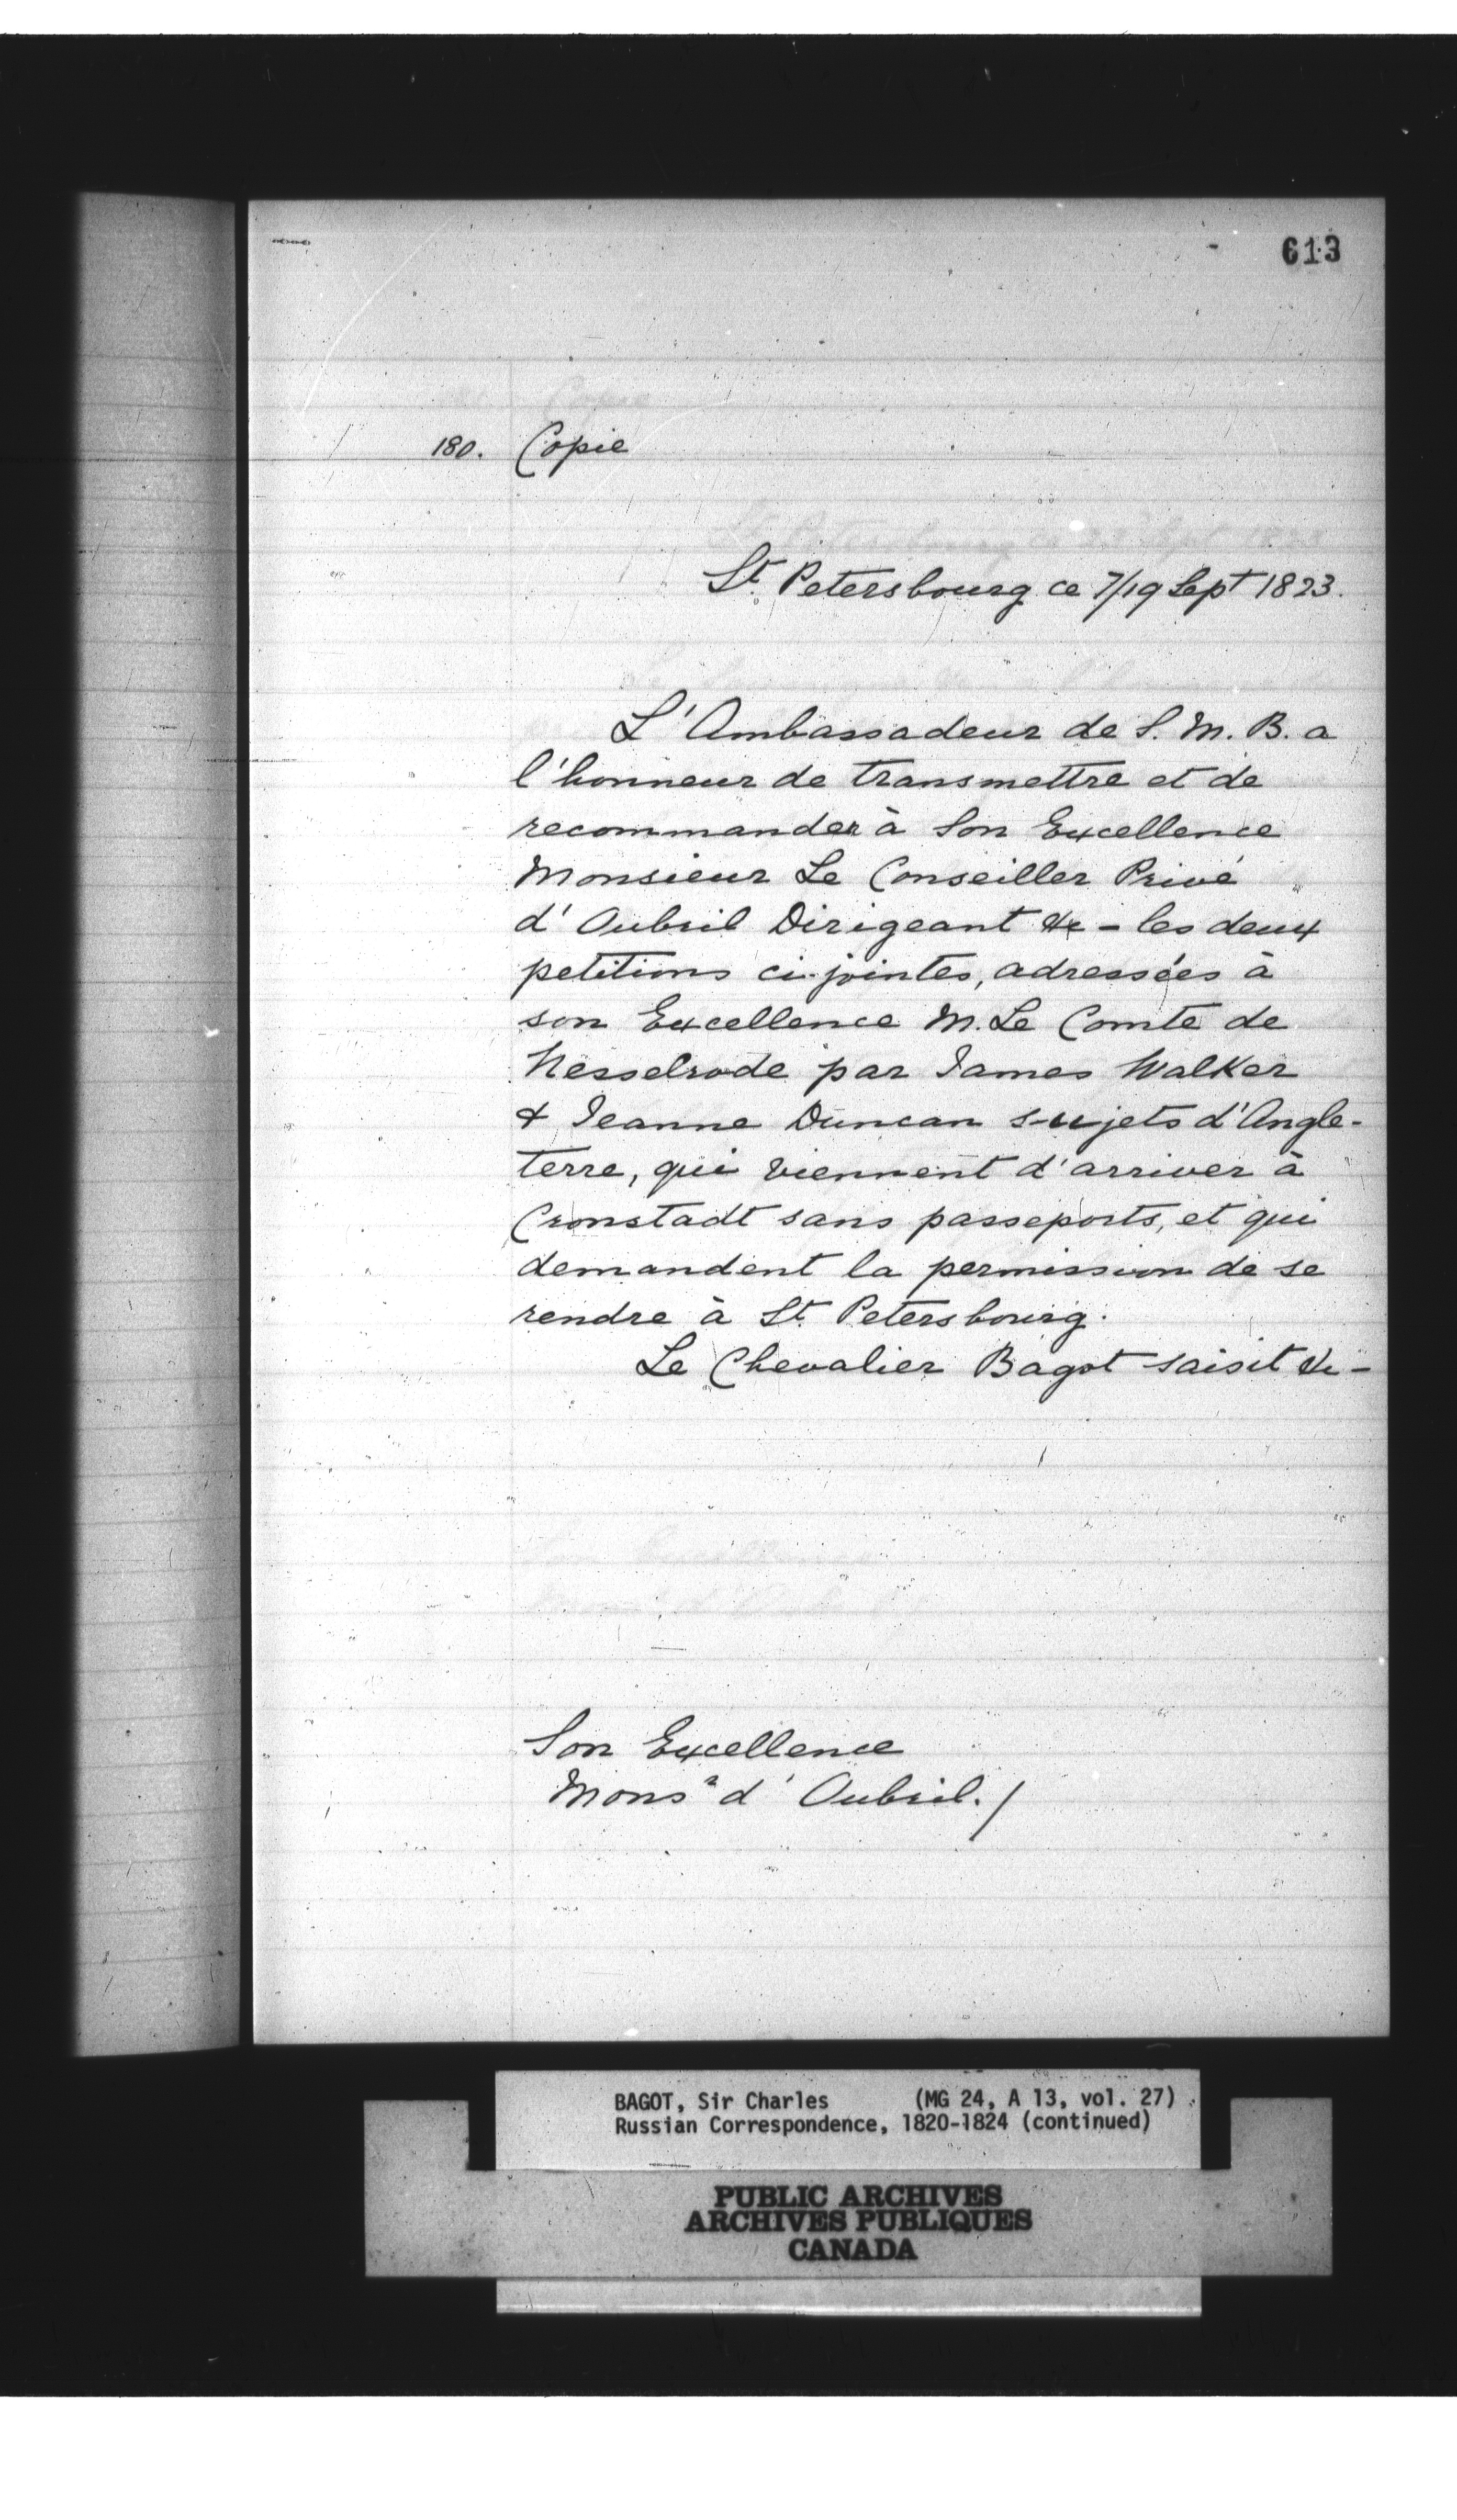 613
180. Copie
St. Petersbourg ce 7/19 Sept 1823.
L'Ambassadeur de S. M. B. a
l'honneur de transmettre et de
recommander à Son Excellence
Monsieur Le Conseiller Privé
d'Oubril Dirigeant &c - les deux
petitions ci-jointes, adressées à
son Excellence M. Le Comte de
Nesselrode par James Walker
& Jeanne Duncan sujets d'Angle-
terre, qui viennent d'arriver à
Cronstadt sans passeports, et qui
demandent la permission de se
rendre à St. Petersbourg.
Le Chevalier Bagot saisit &c -
Son Excellence
Monsr d'Oubril./
BAGOT, Sir Charles (MG 24, A 13, vol. 27)
Russian Correspondence, 1820-1824 (continued)
PUBLIC ARCHIVES
ARCHIVES PUBLIQUES
CANADA